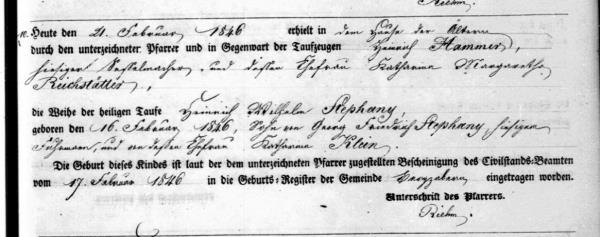 Riehm.
Heute den 21. Februar 1846 erhielt in dem Hause der Altern
durch den unterzeichneter Pfarrer und in Gegenwart der Taufzeugen Heinrich Hammer,
hiesiger Sesselmacher und dessen Ehefrau Katharina Margaretha
Reichstätter,
die Weihe der heiligen Taufe Heinrich Wilhelm Stephany
geboren den 16. Februar 1846, Sohn von Georg Friedrich Stephany, hiesigen
Fuhrmann, und von dessen Ehefrau Katharina Klein.
Die Geburt dieses Kindes ist laut der dem unterzeichneten Pfarrer zugestellten Bescheinigung des Civilstands-Beamten
vom 17. Februar 1846 in die Geburts-Register der Gemeinde Bergzabern eingetragen worden.
Unterschrift des Pfarrers.
Riehm.